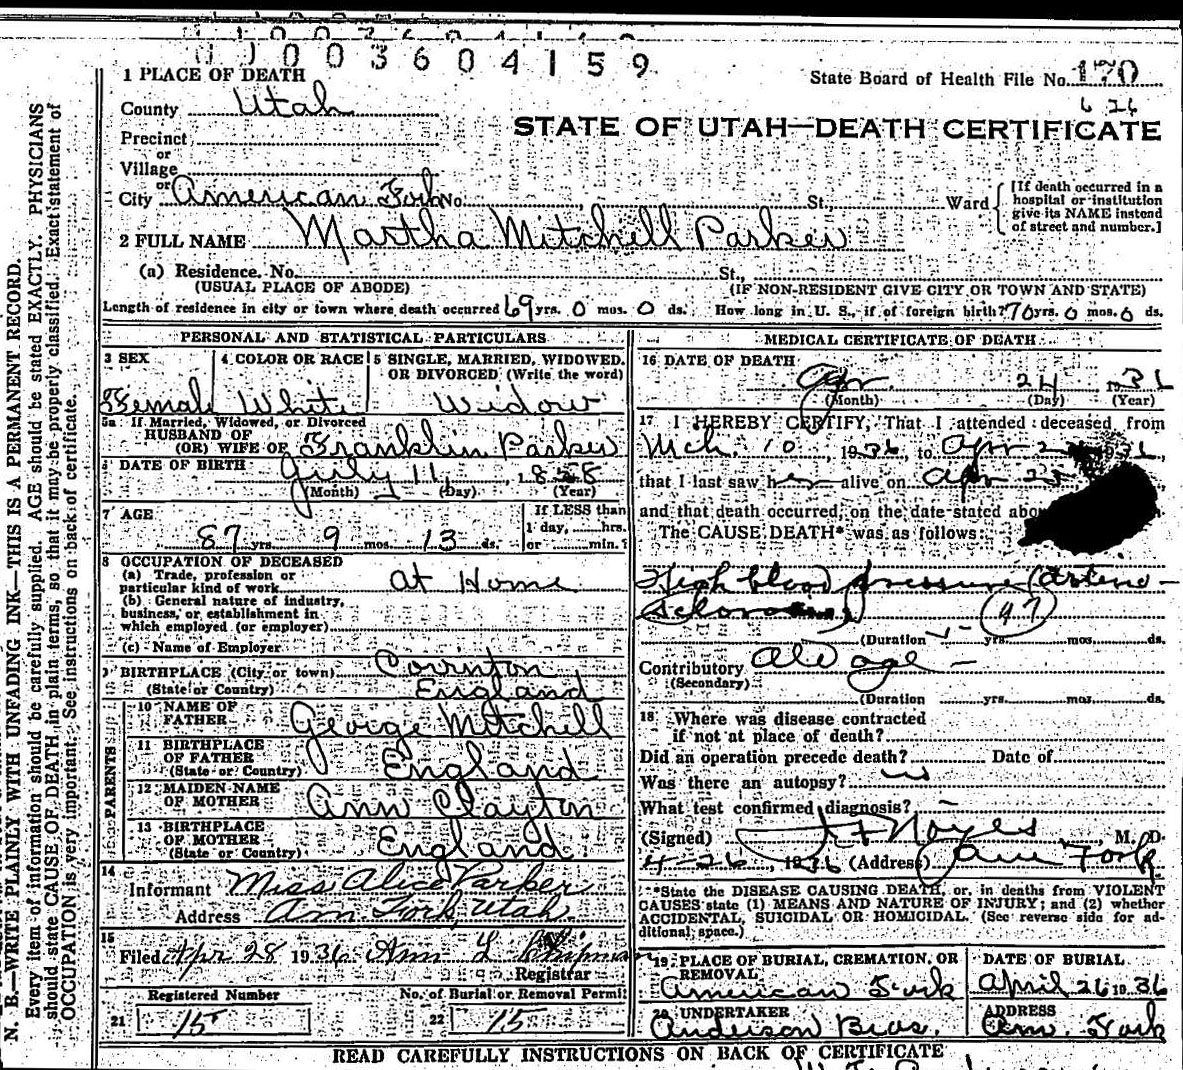 11003604159
1 PLACE OF DEATH
State Board of Health File No. 170
County Utah
6 26
STATE OF UTAH—DEATH CERTIFICATE
Precinct
or
Village
or
City American Fork No. St., Ward
[If death occurred in a hospital or institution give its NAME instead of street and number.]
2 FULL NAME Martha Mitchell Parker
(a) Residence. No. St.,
(USUAL PLACE OF ABODE) (IF NON-RESIDENT GIVE CITY OR TOWN AND STATE)
Length of residence in city or town where death occurred 69 yrs. 0 mos. 0 ds. How long in U. S., if of foreign birth? 70 yrs. 0 mos. 0 ds.
PERSONAL AND STATISTICAL PARTICULARS
3 SEX
Female
4 COLOR OR RACE
White
5 SINGLE, MARRIED, WIDOWED, OR DIVORCED (Write the word)
Widow
5a If Married, Widowed, or Divorced
HUSBAND OF
(OR) WIFE OF Franklin Parker
6 DATE OF BIRTH July 11, 1848
(Month) (Day) (Year)
7 AGE
87 yrs. 9 mos. 13 ds.
If LESS than
1 day, hrs.
or min.?
8 OCCUPATION OF DECEASED
(a) Trade, profession or
particular kind of work At Home
(b) General nature of industry,
business, or establishment in
which employed (or employer)
(c) Name of Employer
9 BIRTHPLACE (City or town)
(State or Country) England
PARENTS
10 NAME OF
FATHER George Mitchell
11 BIRTHPLACE
OF FATHER
(State or Country) England
12 MAIDEN NAME
OF MOTHER Ann Clayton
13 BIRTHPLACE
OF MOTHER
(State or Country) England
14
Informant Miss Alice Parker
Address Am. Fork, Utah.
15
Filed Apr 28 1936
Registrar
Registered Number
21 15
No. of Burial or Removal Permit
22 15
MEDICAL CERTIFICATE OF DEATH
16 DATE OF DEATH
Apr 24 1936
(Month) (Day) (Year)
17 I HEREBY CERTIFY, That I attended deceased from
Mch. 10, 1936, to Apr
that I last saw her alive on Apr 23
and that death occurred, on the date stated
The CAUSE DEATH* was as follows:
High blood pressure (Arterio-
Sclerosis) 97
(Duration yrs. mos. ds.
Contributory Old age
(Secondary)
(Duration yrs. mos. ds.
18 Where was disease contracted
if not at place of death?
Did an operation precede death? Date of
Was there an autopsy? no
What test confirmed diagnosis? —
(Signed) Noyes, M. D.
4-26 1936 (Address) Am Fork
*State the DISEASE CAUSING DEATH, or, in deaths from VIOLENT
CAUSES state (1) MEANS AND NATURE OF INJURY; and (2) whether
ACCIDENTAL, SUICIDAL OR HOMICIDAL. (See reverse side for ad-
ditional space.)
19 PLACE OF BURIAL, CREMATION, OR
REMOVAL
American Fork
DATE OF BURIAL
April 26 1936
20 UNDERTAKER
Anderson Bros.
ADDRESS
Am. Fork
READ CAREFULLY INSTRUCTIONS ON BACK OF CERTIFICATE
N. B.—WRITE PLAINLY WITH UNFADING INK—THIS IS A PERMANENT RECORD.
Every item of information should be carefully supplied. AGE should be stated EXACTLY. PHYSICIANS
should state CAUSE OF DEATH in plain terms, so that it may be properly classified. Exact statement of
OCCUPATION is very important. See instructions on back of certificate.